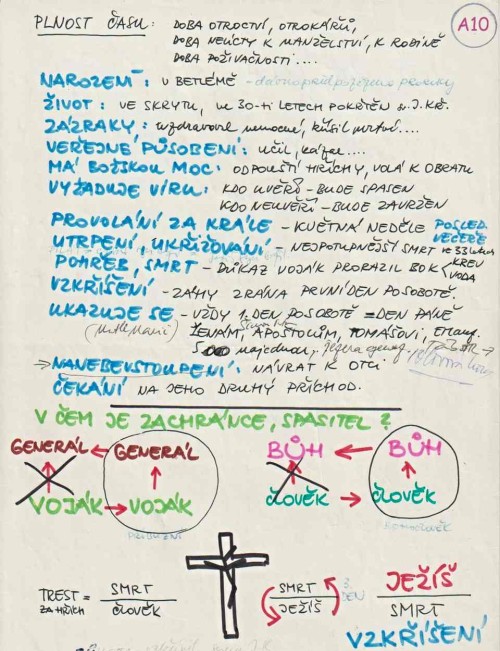 PLNOST ČASU: DOBA OTROCTVÍ, OTROKÁŘŮ, A10
DOBA NEÚCTY K MANŽELSTVÍ, K RODINĚ
DOBA POŽIVAČNOSTI....
NAROZENÍ: V BETLÉMĚ -
ŽIVOT: VE SKRYTU, ve 30-ti LETECH POKŘTĚN sv. J. Kř.
ZÁZRAKY: uzdravoval nemocné, křísil mrtvé....
VEŘEJNÉ PŮSOBENÍ: UČIL, kázal....
MÁ BOŽSKOU MOC: ODPOUŠTÍ HŘÍCHY, VOLÁ K OBRATU
VYŽADUJE VÍRU: KDO UVĚŘÍ - BUDE SPASEN
KDO NEUVĚŘÍ - BUDE ZAVRŽEN
PROVOLÁNÍ ZA KRÁLE - KVĚTNÁ NEDĚLE POSLED. VEČEŘE
UTRPENÍ, UKŘIŽOVÁNÍ - NEJPOTUPNĚJŠÍ SMRT ve 33 letech
POHŘEB, SMRT - DŮKAZ VOJÁK PRORAZIL BOK KREV VODA
VZKŘÍŠENÍ - ZÁHY ZRÁNA PRVNÍ DEN PO SOBOTĚ.
UKAZUJE SE - VŽDY 1. DEN PO SOBOTĚ = DEN PÁNĚ
ŽENÁM, APOŠTOLŮM, TOMÁŠOVI,
500 najednou,
NANEBEVSTOUPENÍ: NÁVRAT K OTCI
ČEKÁNÍ NA JEHO DRUHÝ PŘÍCHOD.
V ČEM JE ZACHRÁNCE, SPASITEL?
GENERÁL GENERÁL BŮH BŮH
VOJÁK VOJÁK ČLOVĚK ČLOVĚK
TREST ZA HŘÍCH = SMRT ČLOVĚK
SMRT JEŽÍŠ
3. DEN
JEŽÍŠ
SMRT
VZKŘÍŠENÍ